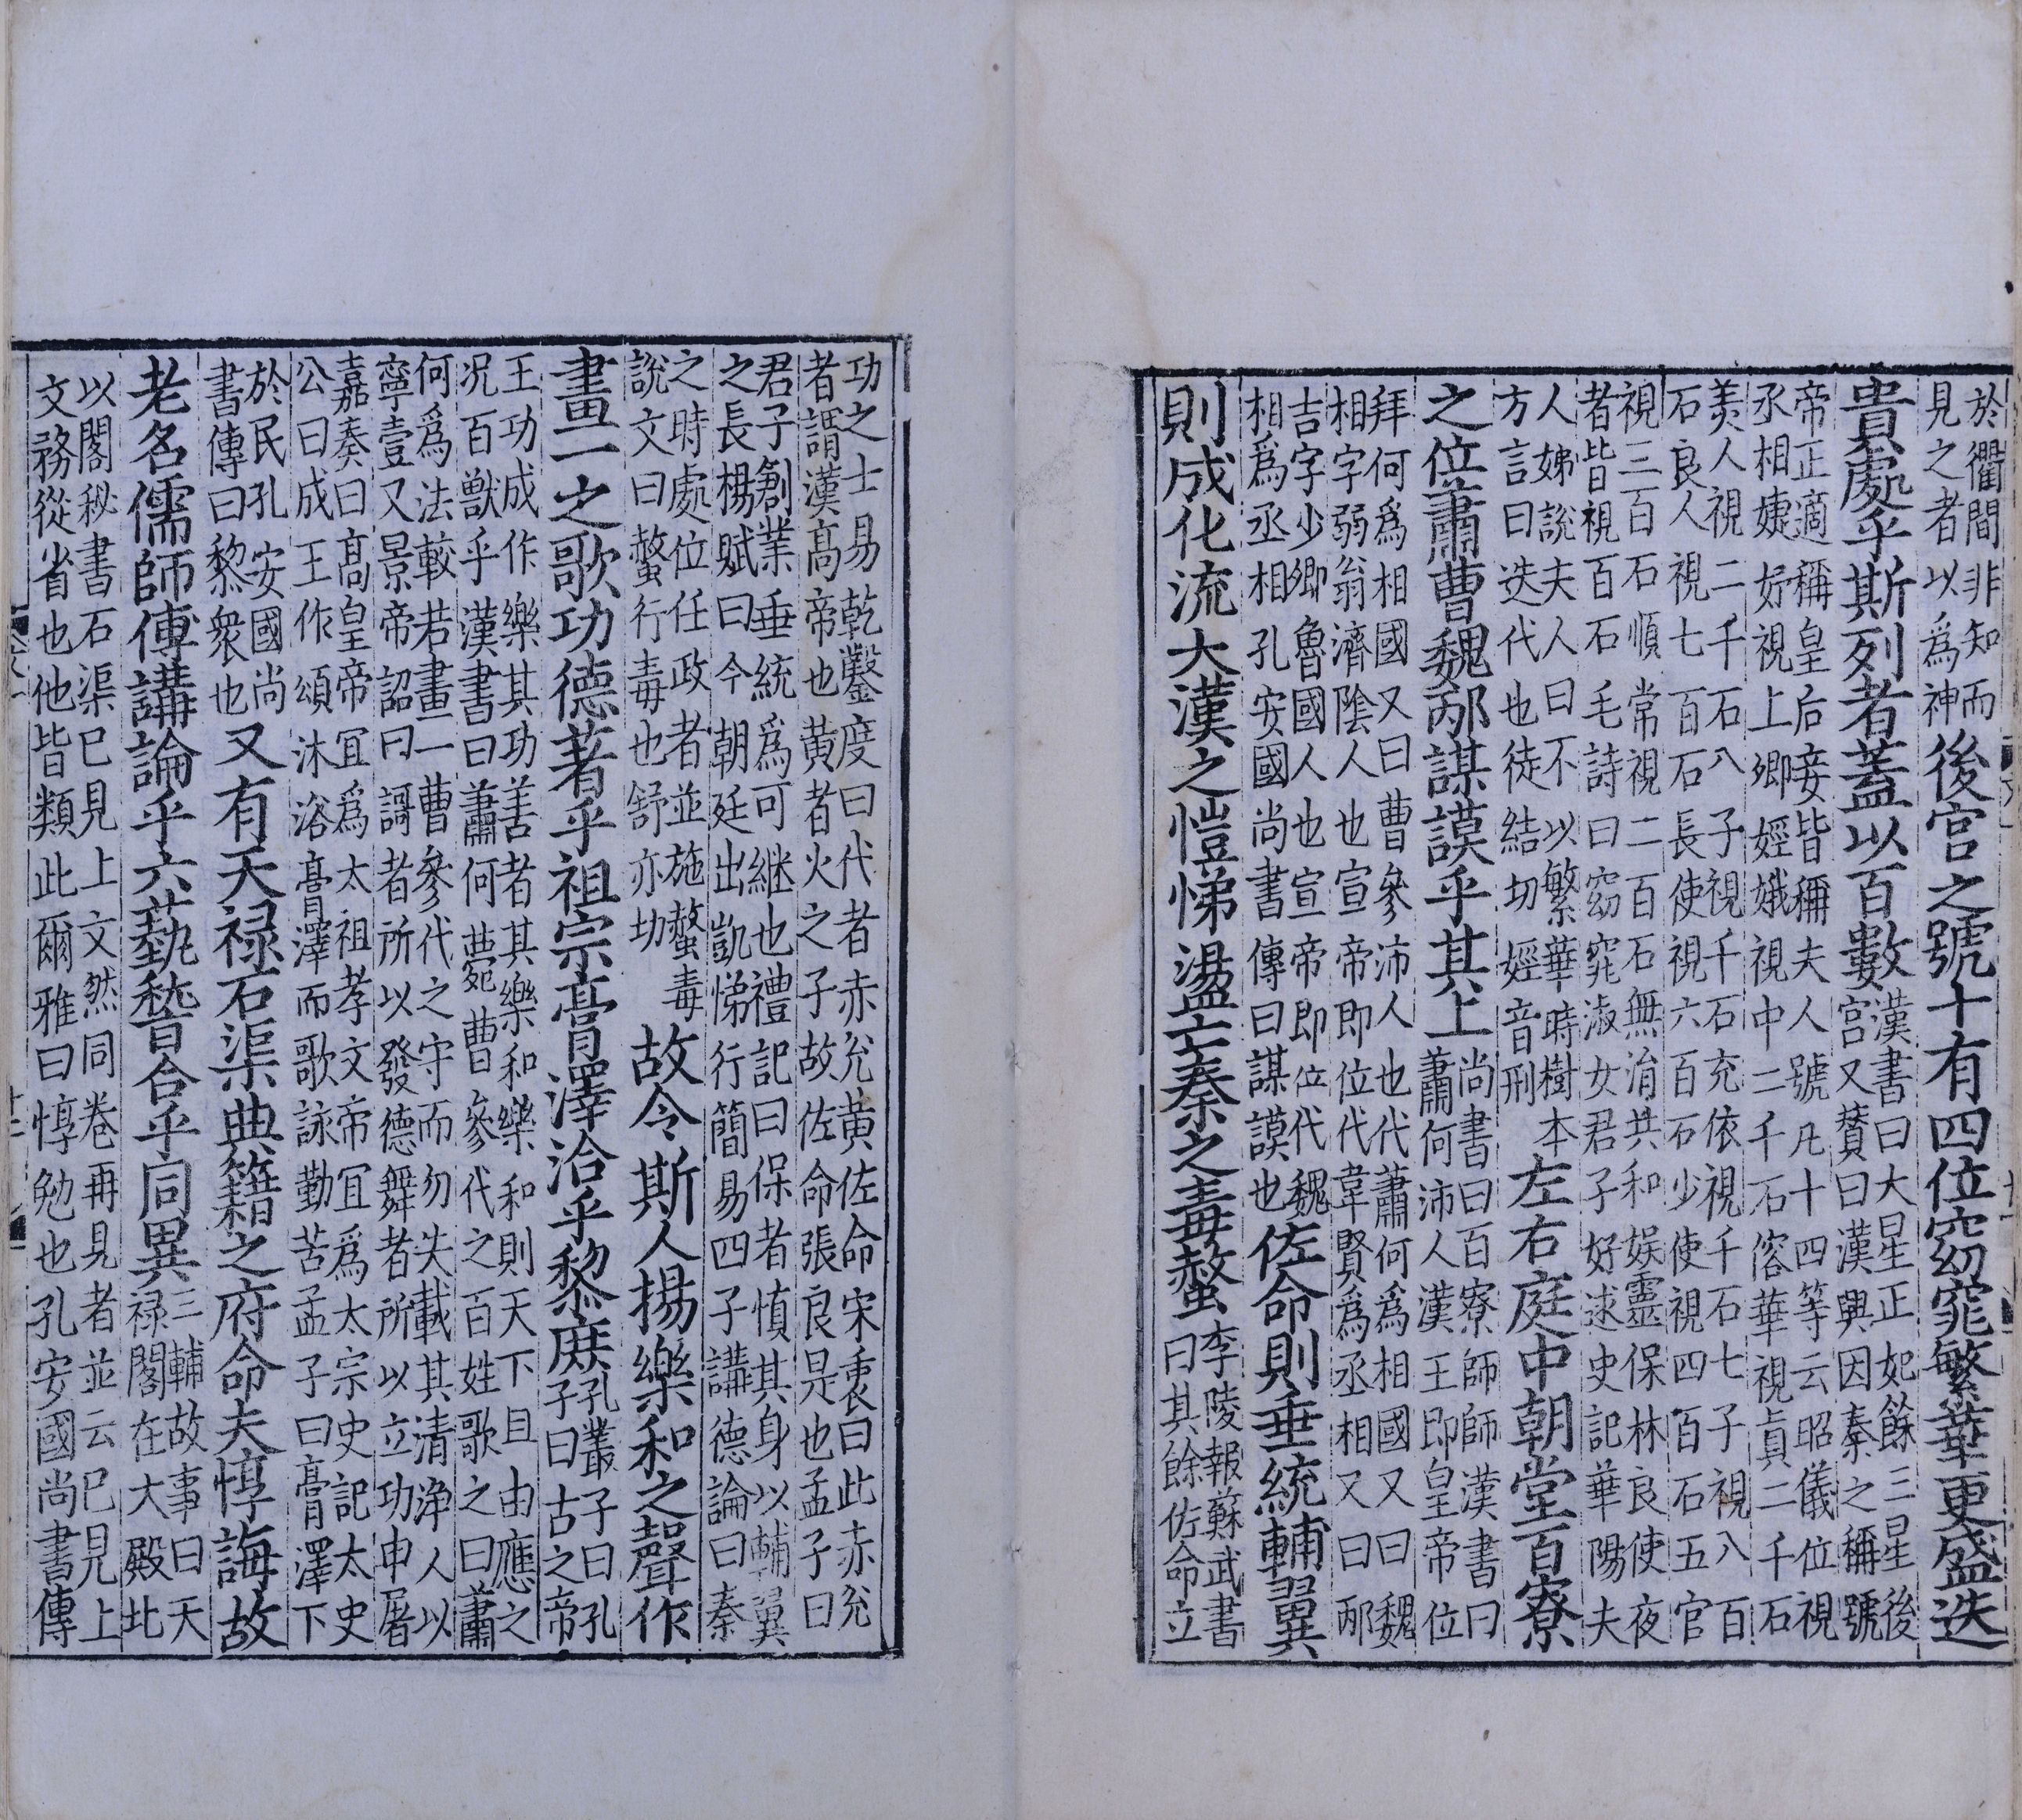 於衢間非知而
見之者以爲神
後宮之號十有四位窈窕繁華更盛迭
貴處乎斯列者蓋以百數
漢書曰大星正妃餘三星後
宮又賛曰漢興因秦之稱號
帝正適稱皇后妾皆稱夫人號凡十四等云昭儀位視
丞相婕妤視上卿娙娥視中二千石傛華視真二千石
美人視二千石八子視千石充依視千石七子視八百
石良人視七百石長使視六百石少使視四百石五官
視三百石順常視二百石無涓共和娛靈保林良使夜
者皆視百石毛詩曰窈窕淑女君子好逑史記華陽夫
人姊說夫人曰不以繁華時樹本
方言曰迭代也徒結切娙音刑
左右庭中朝堂百寮
之位蕭曹魏邴謀謨乎其上
尚書曰百寮師師漢書曰
蕭何沛人漢王即皇帝位
拜何爲相國又曰曹參沛人也代蕭何爲相國又曰魏
相字弱翁濟陰人也宣帝即位代韋賢爲丞相又曰邴
吉字少卿魯國人也宣帝即位代魏
相爲丞相孔安國尚書傳曰謀謨也
佐命則垂統輔翼
則成化流大漢之愷悌盪亡秦之毒螫
李陵報蘇武書
曰其餘佐命立
功之士易乾鑿度曰代者赤兊黃佐命宋衷曰此赤兊
者謂漢高帝也黃者火之子故佐命張良是也孟子曰
君子創業垂統爲可継也禮記曰保者慎其身以輔翼
之長楊賦曰今朝廷出凱悌行簡易四子講德論曰秦
之時處位任政者並施螫毒
說文曰螫行毒也舒亦切
故令斯人揚樂和之聲作
畫一之歌功德著乎祖宗膏澤洽乎黎庶
孔叢子曰孔
子曰古之帝
王功成作樂其功善者其樂和樂和則天下且由應之
况百獸乎漢書曰蕭何薨曹參代之百姓歌之曰蕭
何爲法較若畫一曹參代之守而勿失載其清淨人以
寧壹又景帝詔曰謌者所以發德舞者所以立功申屠
嘉奏曰高皇帝冝爲太祖孝文帝冝爲太宗史記太史
公曰成王作頌沐浴膏澤而歌詠勤苦孟子曰膏澤下
於民孔安國尚
書傳曰黎衆也
又有天禄石渠典籍之府命夫惇誨故
老名儒師傅講論乎六藝稽合乎同異
三輔故事曰天
禄閣在大殿北
以閣秘書石渠已見上文然同卷再見者並云已見上
文務從省也他皆類此爾雅曰惇勉也孔安國尚書傳